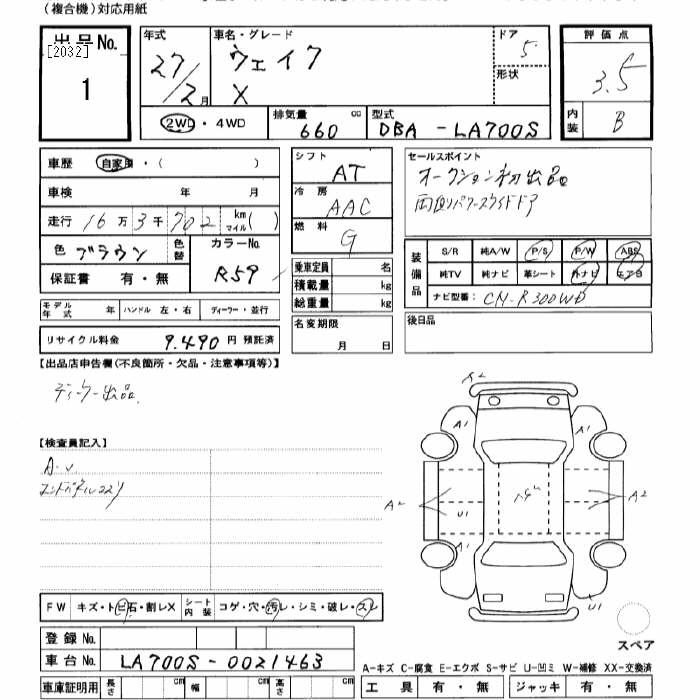 (複合機)対応用紙
出品No. 年式 車名・グレード ドア 評価点
[2032] 27 ウェイク 5 3.5
1 /2月 X 形状
2WD・4WD 排気量 660 cc 型式 DBA-LA700S 内装 B
車歴 自家用・( )
車検 年 月
走行 16万3千702 km マイル( )
色 ブラウン 色替 カラーNo. R59
保証書 有・無
モデル年式 年 ハンドル 左・右 ディーラー・並行
リサイクル料金 9.490円 預託済
シフト AT
冷房 AAC
燃料 G
乗車定員 名
積載量 kg
総重量 kg
名変期限
月 日
セールスポイント
オークション初出品
両側パワースライドドア
装備品 S/R 純A/W P/S P/W ABS
純TV 純ナビ 革シート 外ナビ エアB
ナビ型番: CN-R300WD
後日品
【出品店申告欄(不良箇所・欠品・注意事項等)】
ディーラー出品
【検査員記入】
A.U
FW キズ・トビ石・割レX シート内装 コゲ・穴・汚レ・シミ・破レ・スレ
登録No.
車台No. LA700S-0021463
車庫証明用 長さ cm 幅 cm 高さ cm
A2
A1 A1
A2 A2
U1
A1 A1
U1
スペア
A-キズ C-腐食 E-エクボ S-サビ U-凹ミ W-補修 XX-交換済
工具 有・無 ジャッキ 有・無